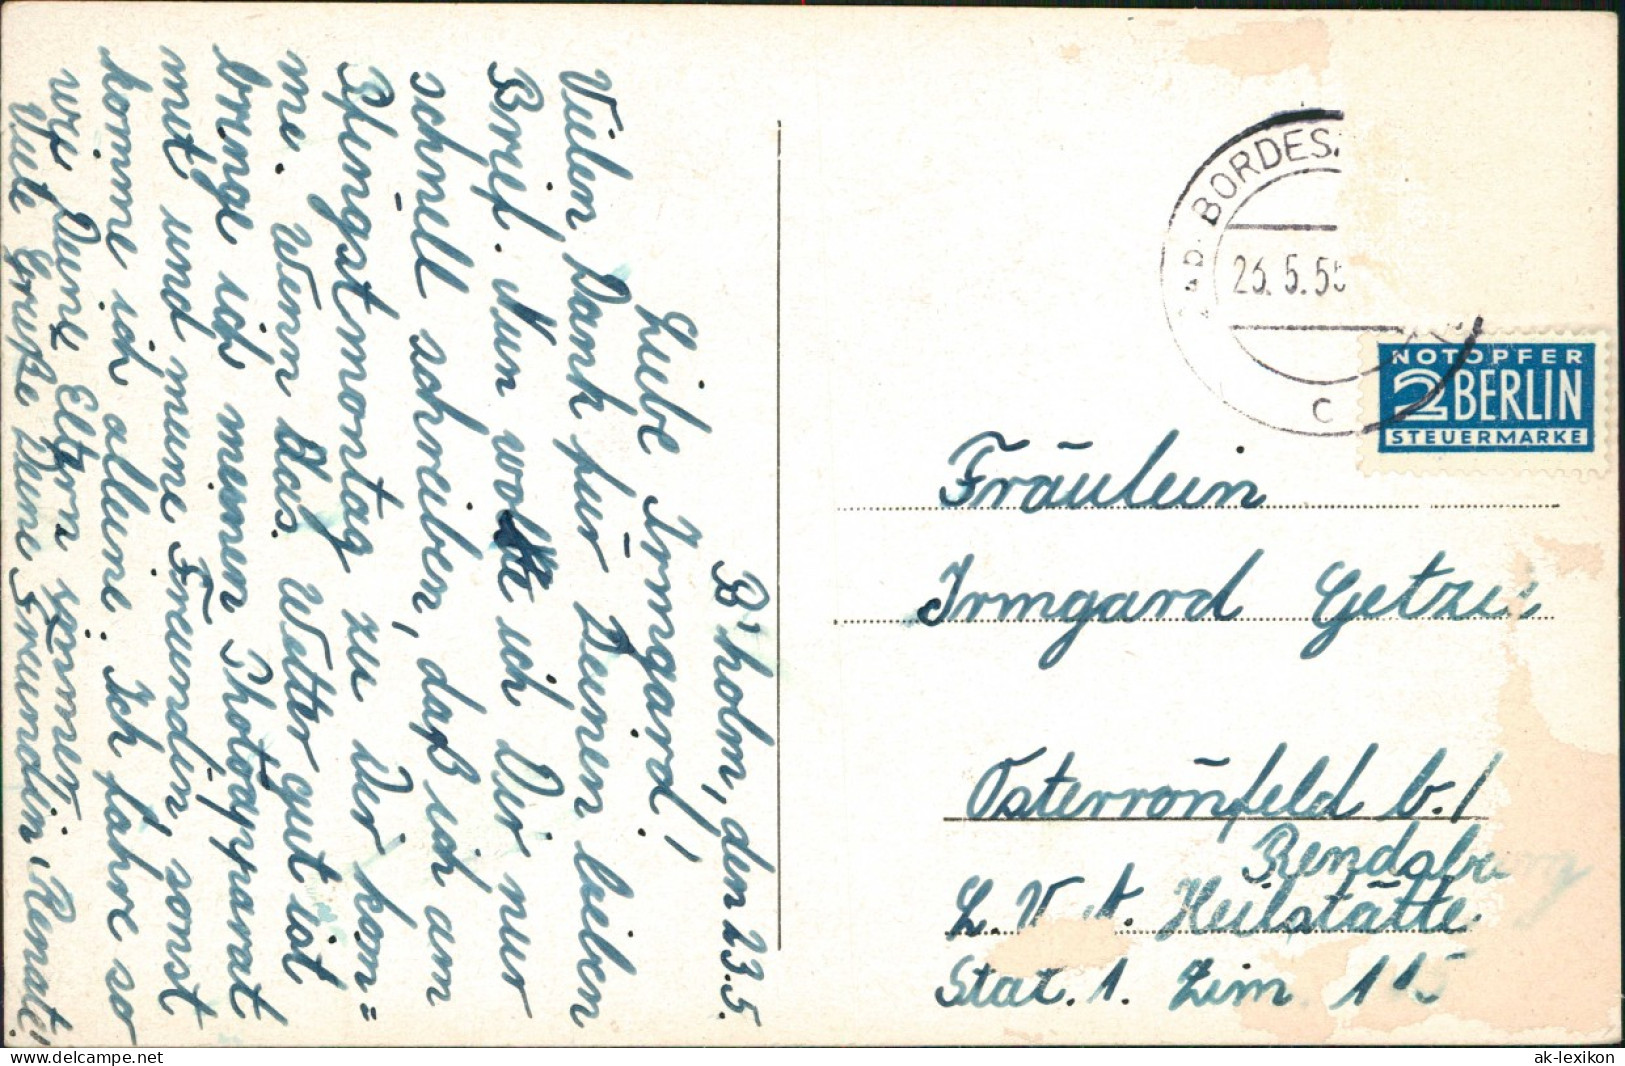 B'holm, den 23.5.
Liebe Irmgard!
Vielen Dank für Deinen lieben
Brief. Nun wollte ich Dir nur
schnell schreiben, daß ich am
Pfingstmontag zu Dir kom=
me. Wenn das Wetter gut ist
bringe ich meinen Photoapparat
mit und meine Freundin, sonst
komme ich alleine. Ich fahre so
wie Deine Eltern
Viele Grüße Deine Freundin Renate!
BORDES
23.5.55
c
NOTOPFER
2 BERLIN
STEUERMARKE
Fräulein
Irmgard
Osterrönfeld b./
Rendsburg
L.V.A. Heilstätte
Stat. 1. Zim. 115
ak-lexikon
www.delcampe.net